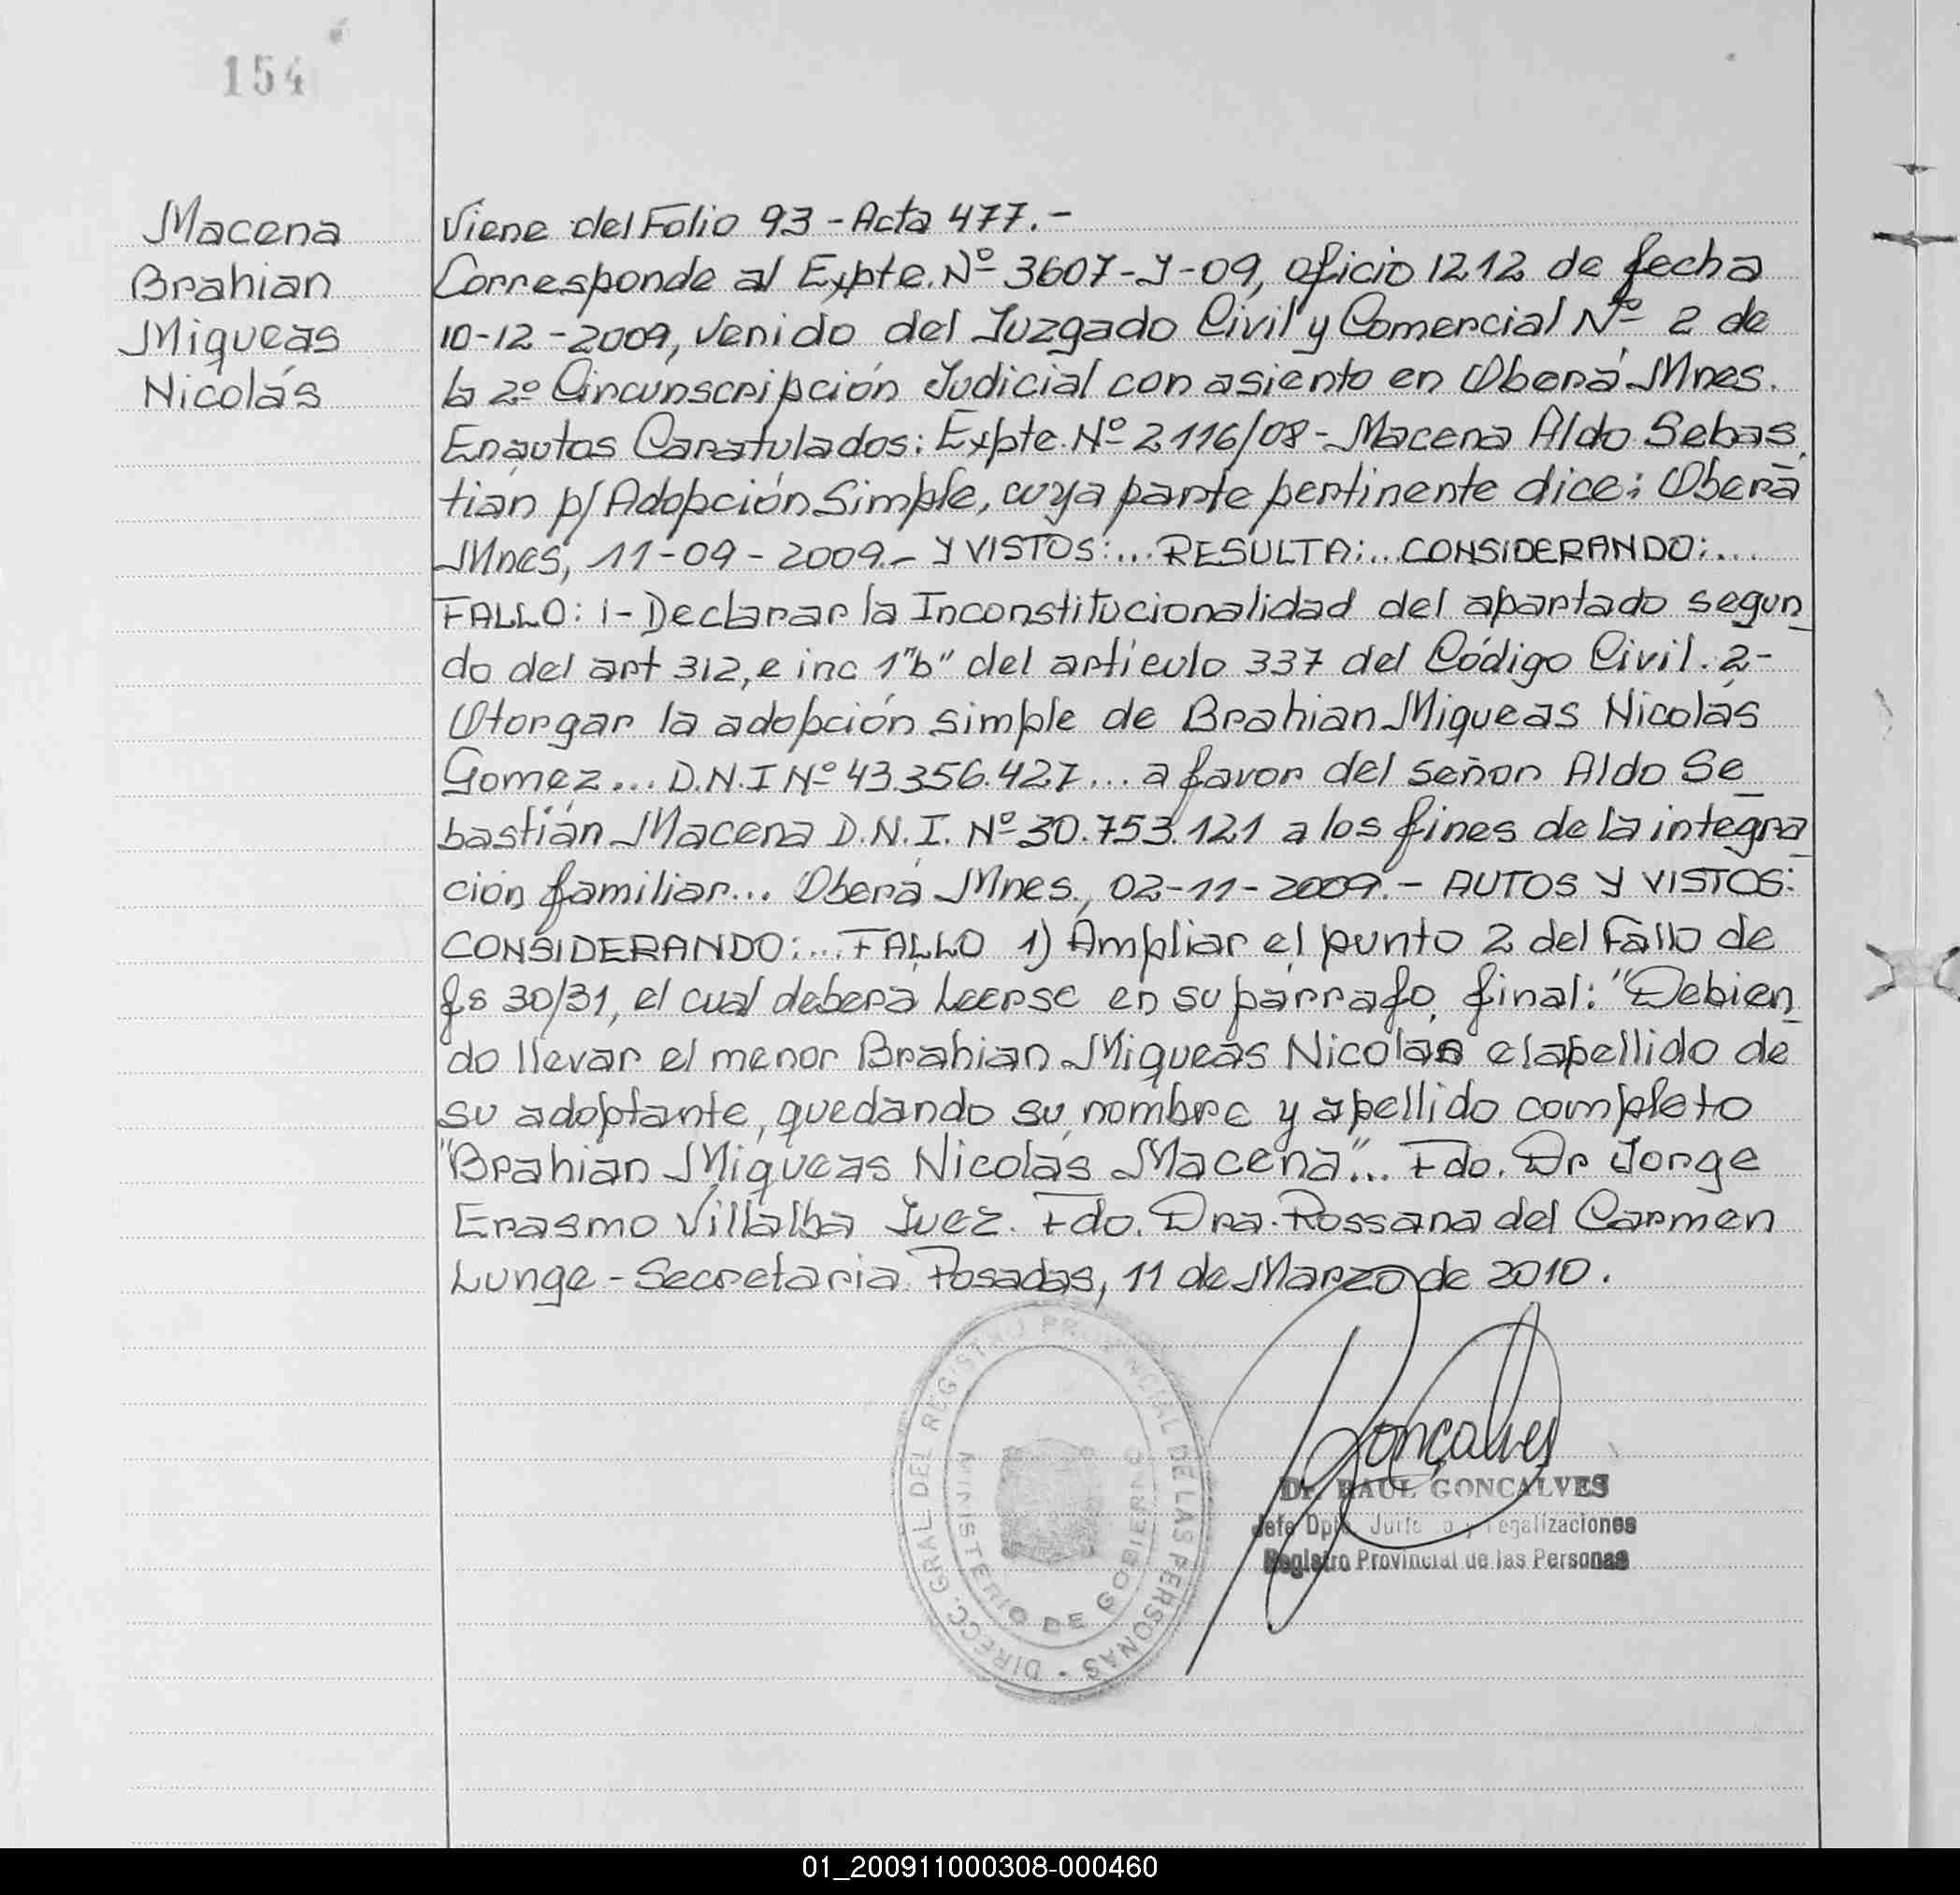 154
Macena
Brahian
Miqueas
Nicolás
Viene del Folio 93 - Acta 477.-
Corresponde al Expte. Nº 3607-J-09, oficio 1212 de fecha
10-12-2009, venido del Juzgado Civil y Comercial Nº 2 de
la 2º Circunscripción Judicial con asiento en Oberá Mnes.
En autos Caratulados: Expte. Nº 2116/08 - Macena Aldo Sebas
tian p/ Adopción Simple, cuya parte pertinente dice: Oberá
Mnes, 11-09-2009.- Y VISTOS:... RESULTA:... CONSIDERANDO:...
FALLO: 1- Declarar la Inconstitucionalidad del apartado segun
do del art 312, e inc 1"b" del artículo 337 del Código Civil. 2-
Otorgar la adopción simple de Brahian Miqueas Nicolás
Gomez... D.N.I Nº 43.356.427... a favor del señor Aldo Se
bastián Macena D.N.I. Nº 30.753.121 a los fines de la integra
ción familiar... Oberá Mnes., 02-11-2009.- AUTOS Y VISTOS:
CONSIDERANDO:... FALLO 1) Ampliar el punto 2 del Fallo de
fs 30/31, el cual deberá Leerse en su párrafo final: "Debien
do llevar el menor Brahian Miqueas Nicolás el apellido de
su adoptante, quedando su nombre y apellido completo
"Brahian Miqueas Nicolás Macena"... Fdo. Dr Jorge
Erasmo Villalba Juez. Fdo. Dra. Rossana del Carmen
Lunge - Secretaria. Posadas, 11 de Marzo de 2010.
DIRECC. GRAL DEL REGISTRO PROVINCIAL DE LAS PERSONAS
MINISTERIO DE GOBIERNO
Gonçalves
Dr. RAUL GONCALVES
Jefe Dpto. y Legalizaciones
Registro Provincial de las Personas
01_200911000308-000460